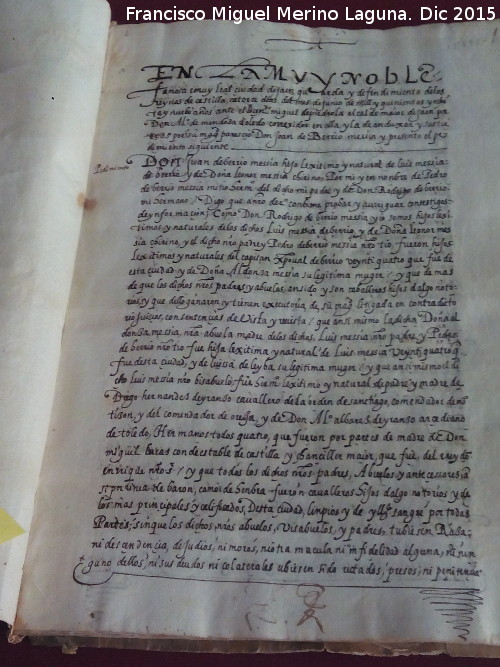 Francisco Miguel Merino Laguna. Dic 2015
EN LA MUY NOBLE
famosa e muy leal ciudad de Jaen guarda y defendimiento de los
Reynos de castilla, catorze dias del mes de Junio de mill y quinientos y
y nueve años ante el
Don
parescio Don Juan de Berrio messia y presento el pe
dimiento siguiente
Pedimiento
DON Juan de berrio messia hijo lexitimo y natural de luis messia
de berrio y de Doña leonor messia cherino, Por mi y en nombre de Pedro
de berrio messia mi tio y de Don Rodrigo de berrio
mi hermano / Digo que a nro der.º conbiene probar y averiguar con testigos
de ynformacion / Como Don Rodrigo de berrio messia y yo somos hijos lexi
timos y naturales de los dichos Luis messia de berrio, y de Doña leonor mes
sia cherino, y el dicho nro padre y Pedro de berrio messia nro tio, fueron hijos
lexitimos y naturales del capitan xpoual de berrio veynti quatro que fue de
esta ciudad, y de Doña Aldonça messia su legitima muger / y que de mas
de que los dichos nros padres y abuelos, an sido y son caballeros hijos dalgo noto
rios, y que dello ganaron y tienen executoria, de su mag.ᵈ litigada en contradito
rio Juicio, con sentencias de vista y revista / que ansi mismo la dicha Doña al
donsa messia, nra abuela madre de los dichos, Luis messia nro padre, y Pedro
de berrio nro tio fue hija lexitima y natural de Luis messia Veynti quatro q
fue desta ciudad, y de luissa de leyba su legitima muger / y que ansi mismo el di
cho luis messia nro bisabuelo fue hermano lexitimo y natural de padre y madre de
Diego hernandes de yranso cavallero de la orden de santiago, comendador de mon
tison, y del comendador de oreja, y de Don M.ˡ albares de yranso arcediano
de toledo, Hermanos todos quatro, que fueron por partes de madre de Don
miguel lucas condestable de castilla y chanciller maior, que fue, del rey don
enrrique nro s.ʳ / y que todos los dichos nros padres, Abuelos, y antecessores
por linea de baron, como de hembra fueron cavalleros Hijos dalgo notorios y de
los mas principales y calificados, desta ciudad, limpios y de yll.ᵉ sangre por todas
Partes, sin que los dichos, nros abuelos, Visabuelos, y padres, tubiesen Rasa,
ni descendencia, de judios, ni moros, ni otra macula ni infidelidad alguna, ni nin
guno dellos, ni sus deudos ni colaterales ubiesen sido rretados, presos, ni penitencia